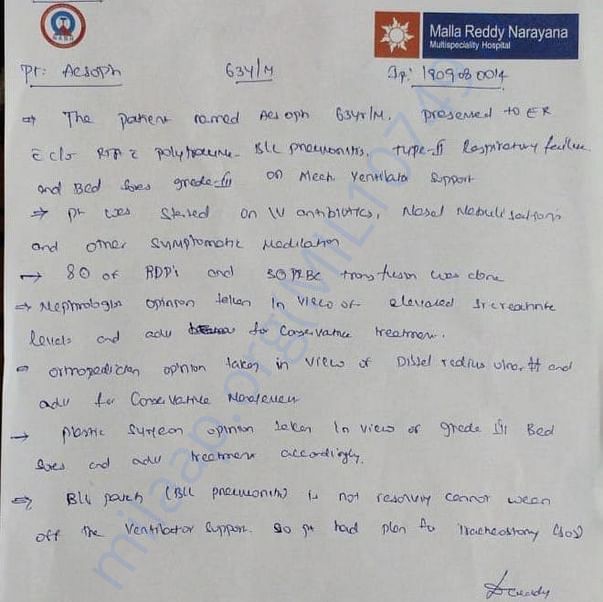 NABH
Malla Reddy Narayana
Multispeciality Hospital
Pt: Aesoph 63Y/M Ip: 190908 0014
⇒ The patient named Aesoph 63yr/M. presented to ER
c̄ c/o RTA c̄ polytrauma - B/L pneumonitis, type-II Respiratory failure
and Bed sores grade-III on Mech Ventilator support
⇒ pt was started on IV antibiotics, Nasal Nebulisations
and other symptomatic Medication
→ 80 of RDP's and 50 PRBC transfusion was done
⇒ Nephrologist opinion taken In view of elevated Sr creatinine
levels and adv for Conservative treatment.
orthopedician opinion taken in view of Distal radius ulna # and
adv for Conservative
→ plastic surgeon opinion taken In view of grade III Bed
sores and adv treatment accordingly.
⇒ B/L patch (B/L pneumonitis) is not resolving cannot wean
off the Ventilator support. so pt had plan for Tracheostomy (SOS)
milaap.org(MIL10749